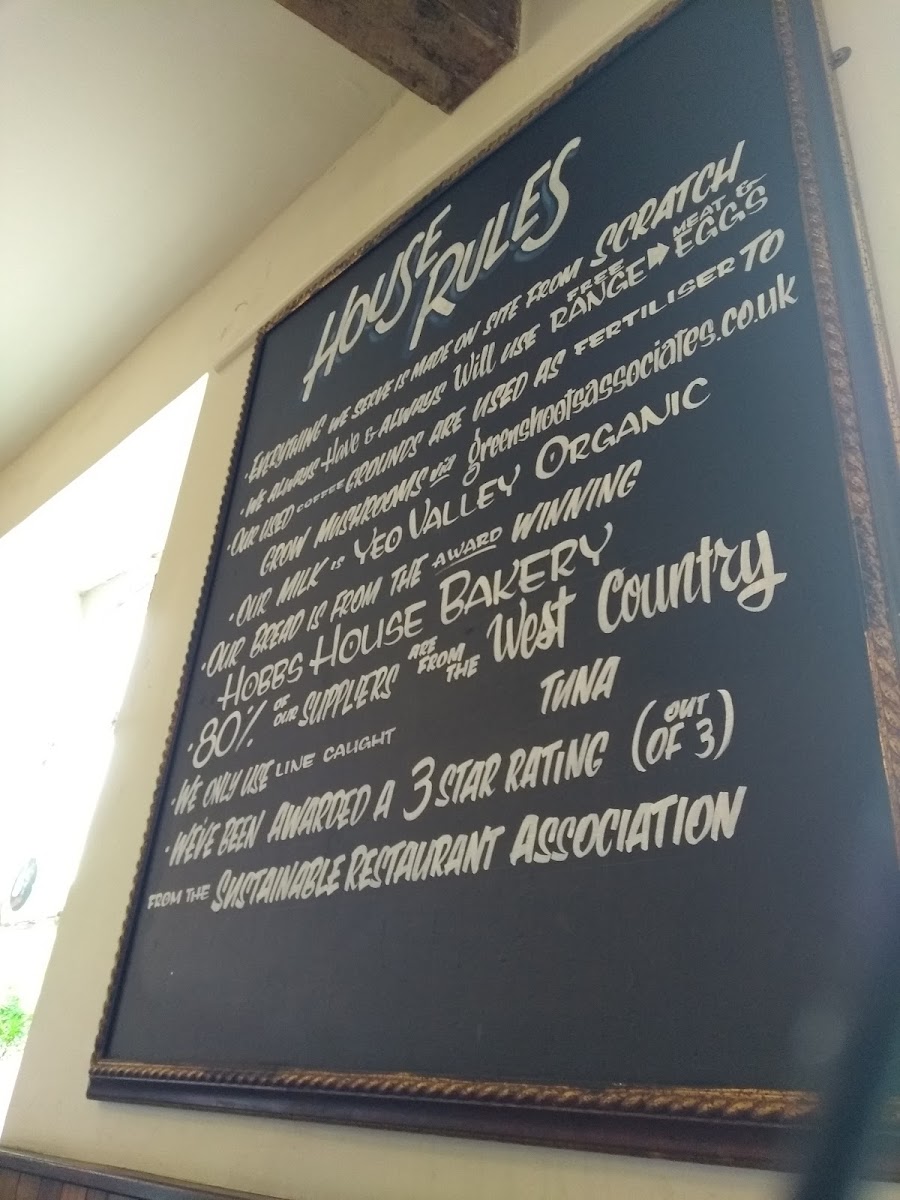 HOUSE
RULES
· EVERYTHING WE SERVE IS MADE ON SITE FROM SCRATCH
· WE ALWAYS Have & ALWAYS Will USE FREE RANGE MEAT & EGGS
· OUR USED COFFEE GROUNDS ARE USED AS FERTILISER TO
GROW MUSHROOMS via greenshootsassociates.co.uk
· OUR MILK IS YEO VALLEY ORGANIC
· OUR BREAD IS FROM THE AWARD WINNING
HOBBS HOUSE BAKERY
· 80% OF OUR SUPPLIERS ARE FROM THE West Country
· WE ONLY USE LINE CAUGHT TUNA
· WE'VE BEEN AWARDED A 3 STAR RATING (OUT OF 3)
FROM THE SUSTAINABLE RESTAURANT ASSOCIATION